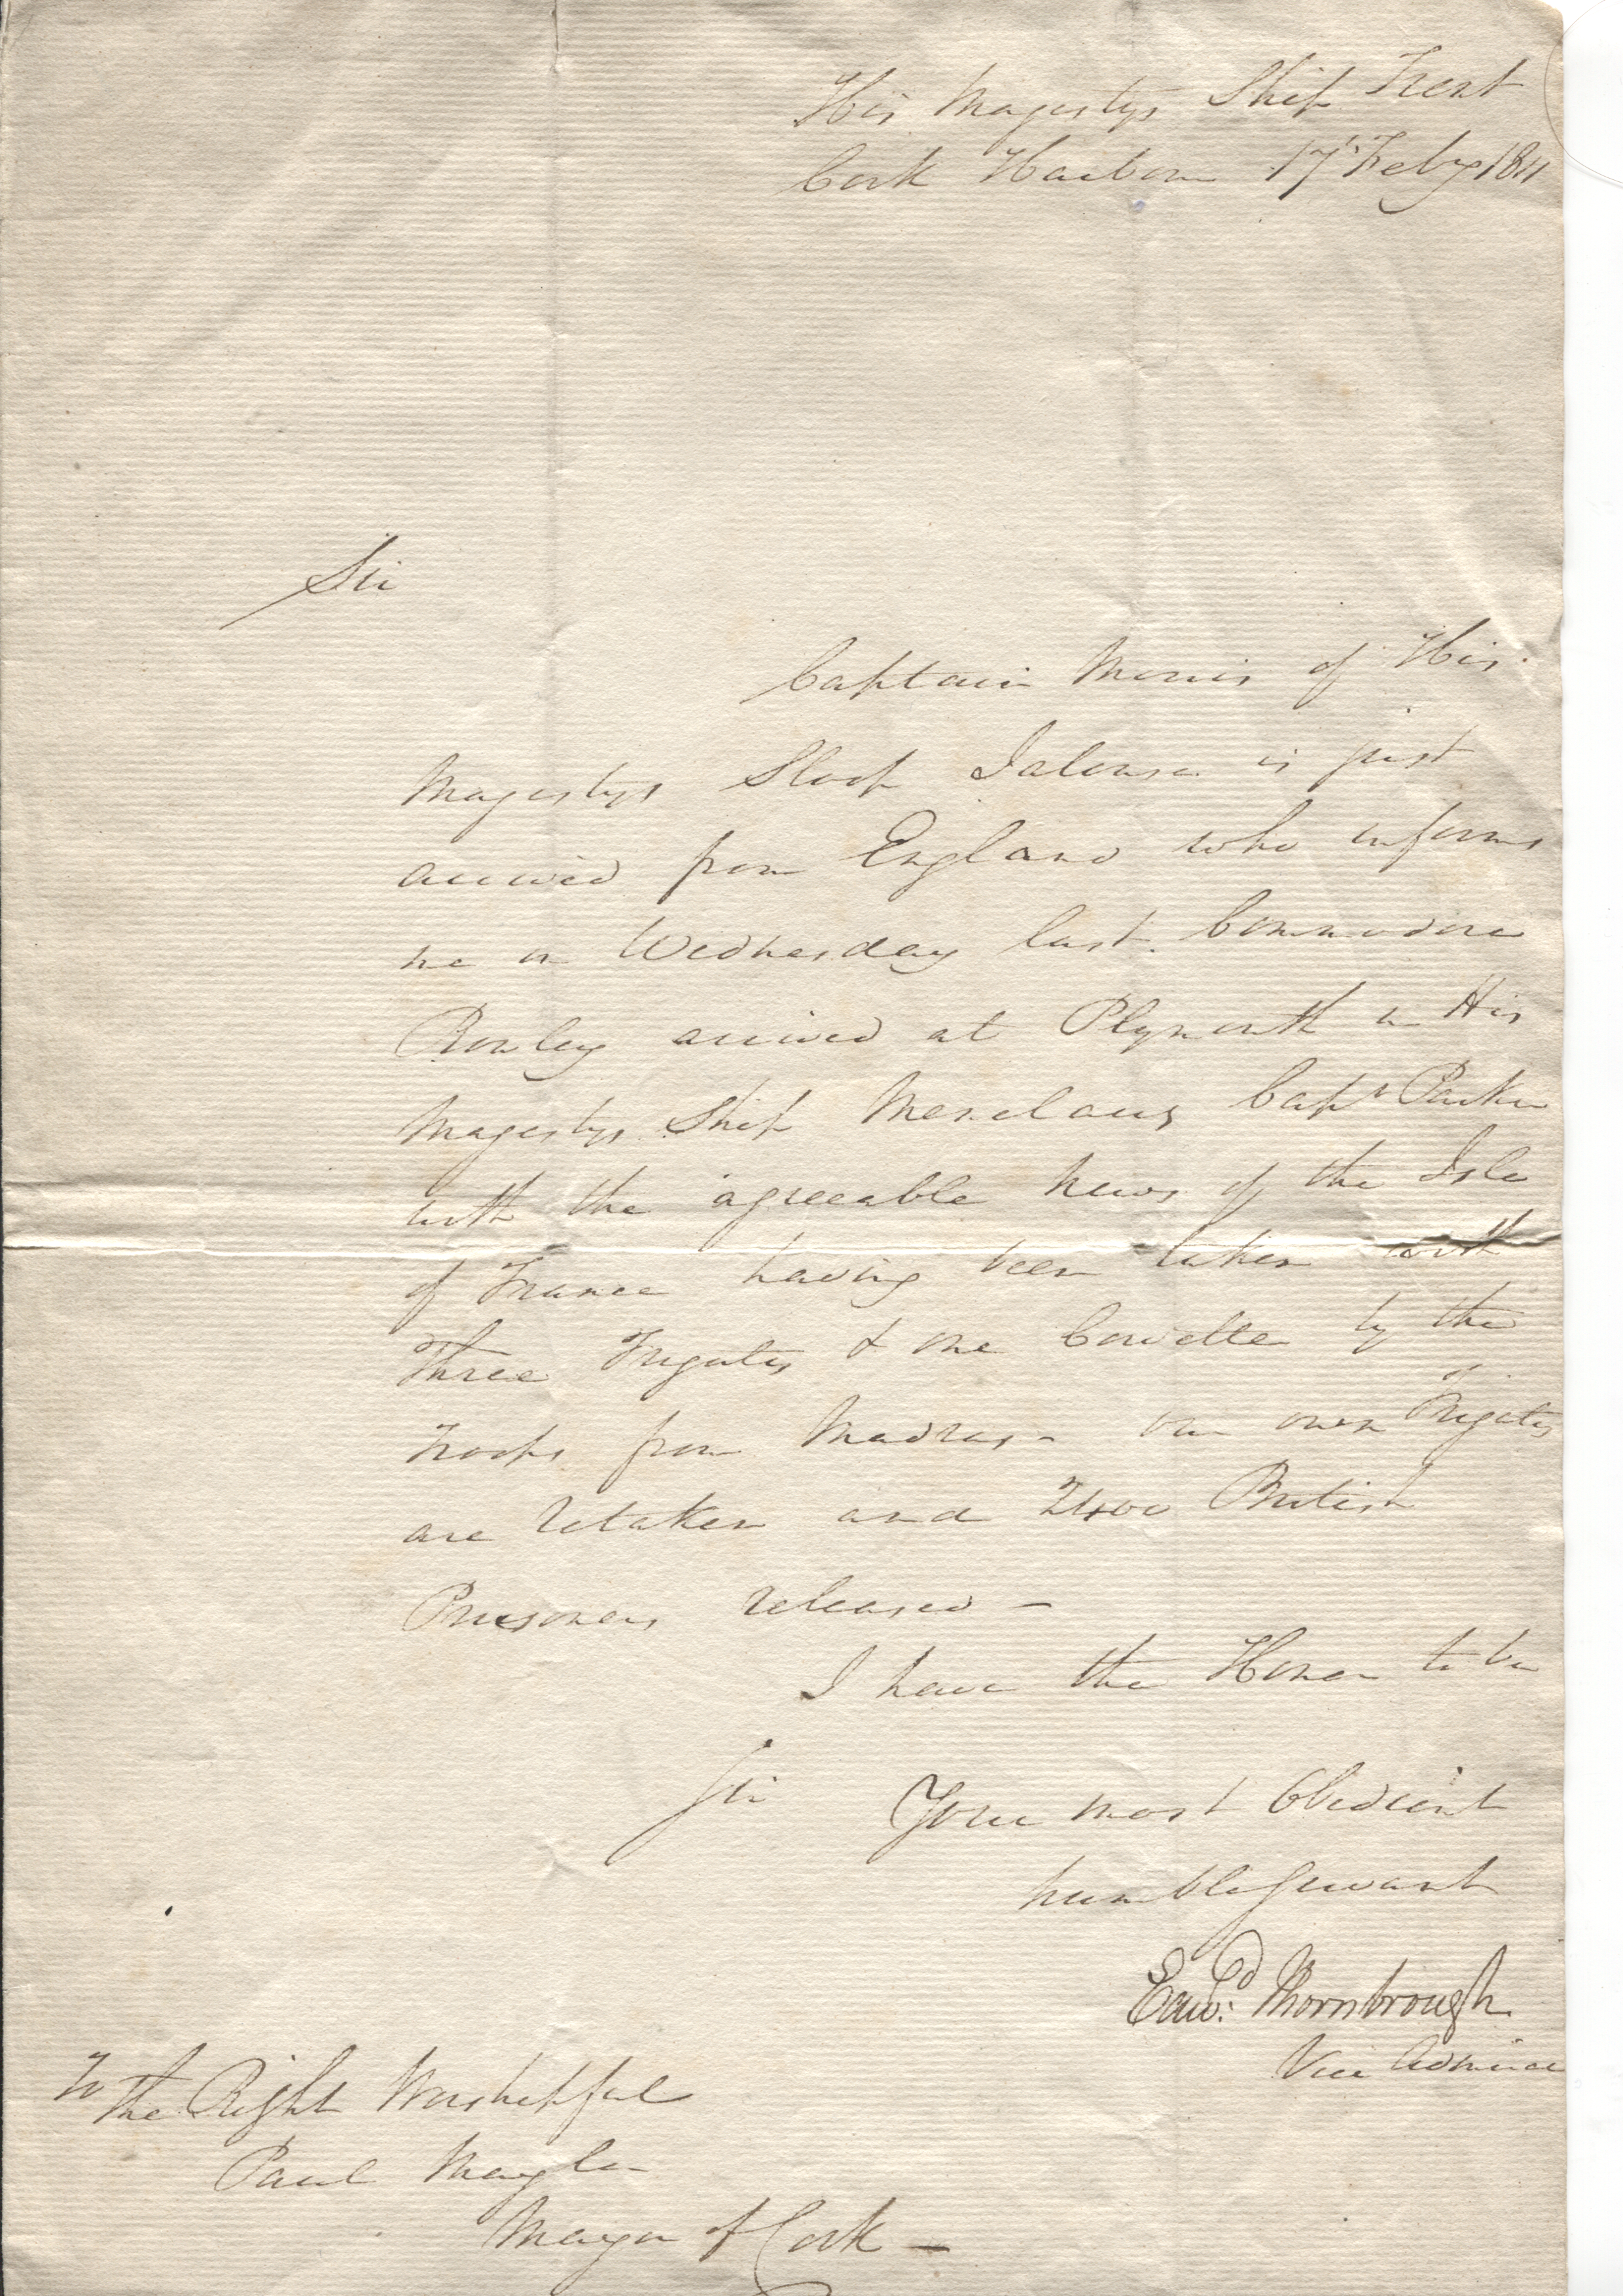 His Majestys Ship Trent
Cork Harbour 17th Feby 1811
Sir
Captain Morris of His
Majestys Sloop Jalouse is just
arrived from England who informs
me on Wednesday last Commodore
Rowley arrived at Plymouth in His
Majestys Ship Menelaus Captn Parker
with the agreeable news of the Isle
of France having been taken with
Three Frigates & one Corvette by the
Troops from Madras - our own Frigates
are retaken and 2400 British
Prisoners released -
I have the Honor to be
Sir Your most Obedient
humble Servant
Edwd: Thornbrough
Vice Admiral
To
The Right Worshipful
Paul Maylor
Mayor of Cork -